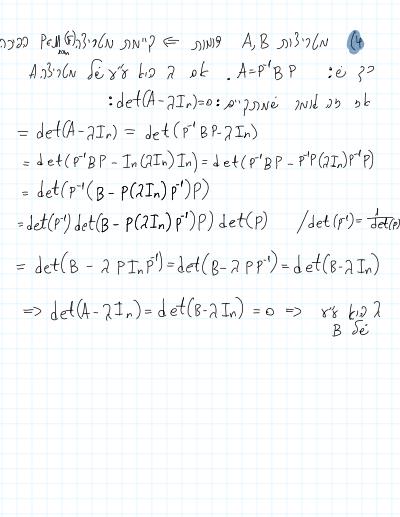 4) מטריצות A,B דומות <= קיימת מטריצה P∈M(F) הפיכה
כך ש: A=P⁻¹BP. אם λ הוא ע"ע של מטריצה A
אז זה אומר שמתקיים: det(A-λIn)=0:
= det(A-λIn) = det(P⁻¹BP-λIn)
= det(P⁻¹BP - In(λIn)In) = det(P⁻¹BP - P⁻¹P(λIn)P⁻¹P)
= det(P⁻¹(B - P(λIn)P⁻¹)P)
= det(P⁻¹)det(B - P(λIn)P⁻¹)P) det(P) /det(P⁻¹)=1/det(P)
= det(B - λPInP⁻¹) = det(B-λPP⁻¹) = det(B-λIn)
=> det(A-λIn) = det(B-λIn) = 0 => λ הוא ע"ע
של B